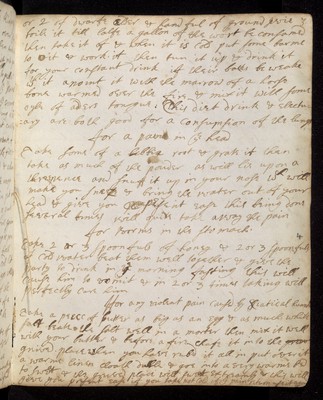 or 2 of dwarfe elder & handfull of ground pine &
boile it till halfe a gallon of the wort be consumed
then take it of & when it is cold put some barme
to it & work it then tun it up & drink it
for your constant drink if their backe be weake
with it anoint it with the marrow of a horse
bone warmed over the fire & mix it with some
oyle of aders tongue, this diet drink & electu
ary are both good for a consumption of the lungs
for a paine in ye head
Take some of a root & grate it then
take as much of the powder as will lie upon a
threepence and snuff it up in your nose it will
make you sneeze & bring the water out of your
head & give you present ease this being done
severall times will quite take away the pain
for worms in the stomach
Take 2 or 3 spoonfulls of honey & 2 or 3 spoonfulls
of cold water beat them well together & give the
party to drink in ye morning fasting this will
cause him to vomit & in 2 or 3 times taking will
perfectly cure him
for any violent pain caused by sciatica
Take a piece of butter as big as an egg & as much white
salt beate the salt well in a morter then mix it well
with your butter & before a fire chafe it into the
grieved place when you have rubed it all in put over it
a warme linen cloath duble & goe into a very warme bed
to sweat & the grieved place will sweat extreamly & will
give you present ease